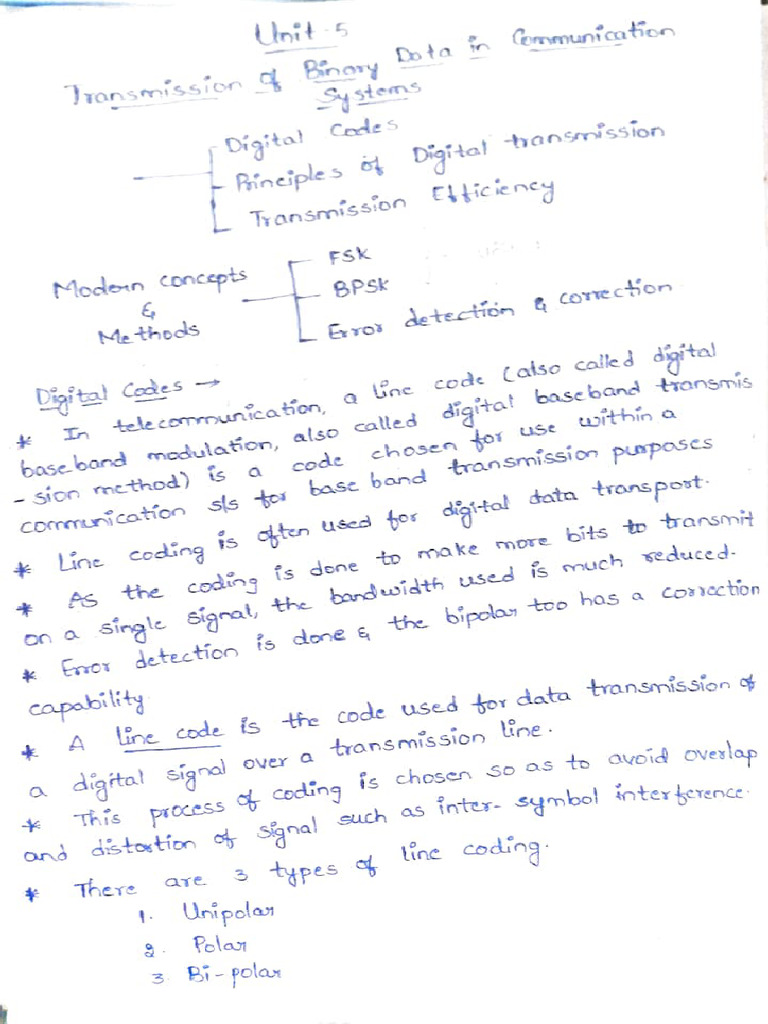 Unit-5
Transmission of Binary Data in Communication
Systems
Digital Codes
Principles of Digital transmission
Transmission Efficiency
Modern concepts
&
Methods
FSK
BPSK
Error detection & correction
Digital Codes →
* In telecommunication, a line code (also called digital
baseband modulation, also called digital baseband transmis
- sion method) is a code chosen for use within a
communication s/s for base band transmission purposes
* Line coding is often used for digital data transport.
* As the coding is done to make more bits to transmit
on a single signal, the bandwidth used is much reduced.
* Error detection is done & the bipolar too has a correction
capability
* A line code is the code used for data transmission of
a digital signal over a transmission line.
* This process of coding is chosen so as to avoid overlap
and distortion of signal such as inter-symbol interference.
* There are 3 types of line coding.
1. Unipolar
2. Polar
3. Bi-polar